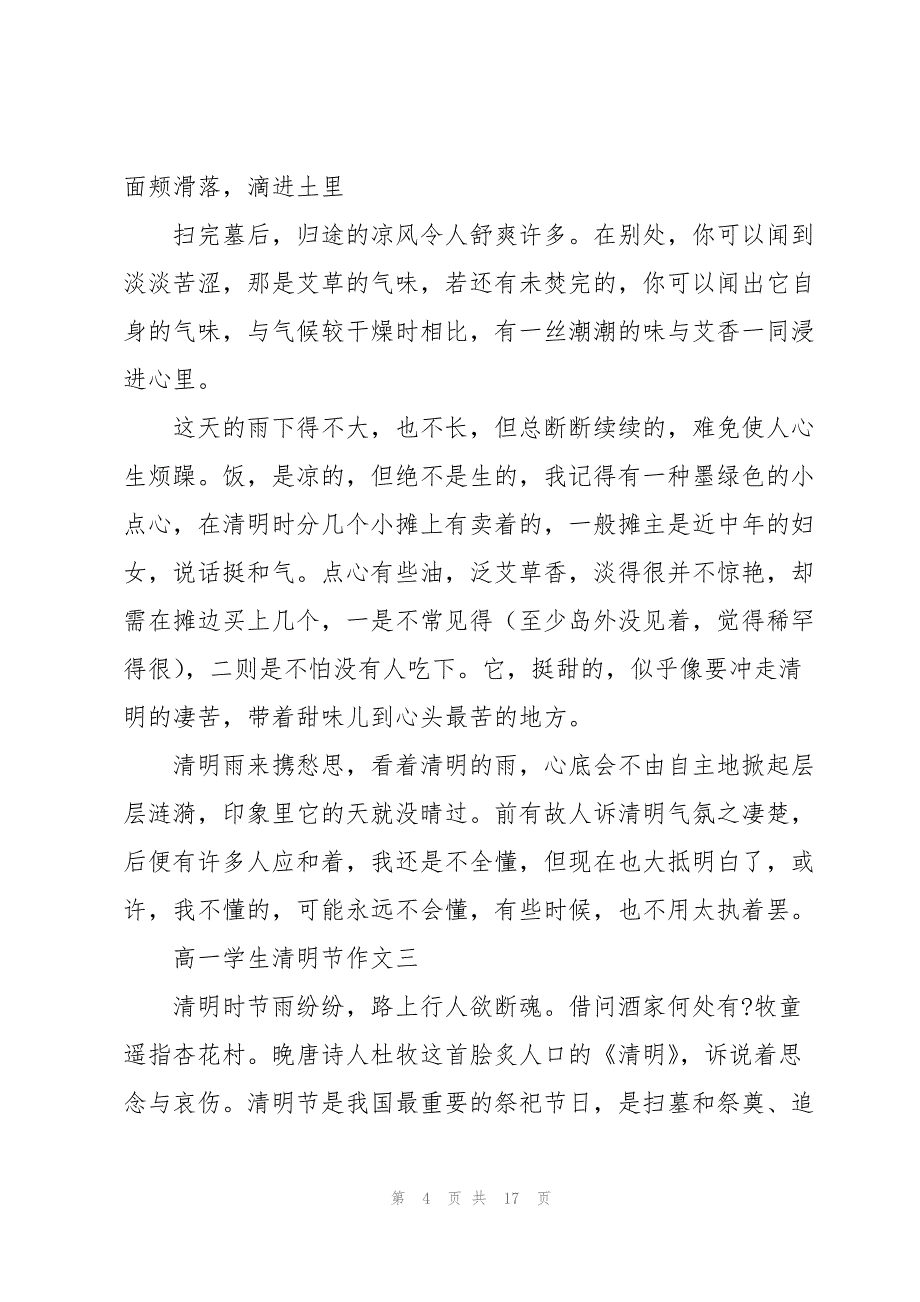 面颊滑落，滴进土里
扫完墓后，归途的凉风令人舒爽许多。在别处，你可以闻到
淡淡苦涩，那是艾草的气味，若还有未焚完的，你可以闻出它自
身的气味，与气候较干燥时相比，有一丝潮潮的味与艾香一同浸
进心里。
这天的雨下得不大，也不长，但总断断续续的，难免使人心
生烦躁。饭，是凉的，但绝不是生的，我记得有一种墨绿色的小
点心，在清明时分几个小摊上有卖着的，一般摊主是近中年的妇
女，说话挺和气。点心有些油，泛艾草香，淡得很并不惊艳，却
需在摊边买上几个，一是不常见得（至少岛外没见着，觉得稀罕
得很），二则是不怕没有人吃下。它，挺甜的，似乎像要冲走清
明的凄苦，带着甜味儿到心头最苦的地方。
清明雨来携愁思，看着清明的雨，心底会不由自主地掀起层
层涟漪，印象里它的天就没晴过。前有故人诉清明气氛之凄楚，
后便有许多人应和着，我还是不全懂，但现在也大抵明白了，或
许，我不懂的，可能永远不会懂，有些时候，也不用太执着罢。
高一学生清明节作文三
清明时节雨纷纷，路上行人欲断魂。借问酒家何处有?牧童
遥指杏花村。晚唐诗人杜牧这首脍炙人口的《清明》，诉说着思
念与哀伤。清明节是我国最重要的祭祀节日，是扫墓和祭奠、追
第 4 页 共 17 页